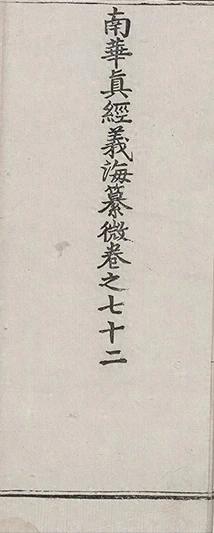 南華眞經義海纂微卷之七十二